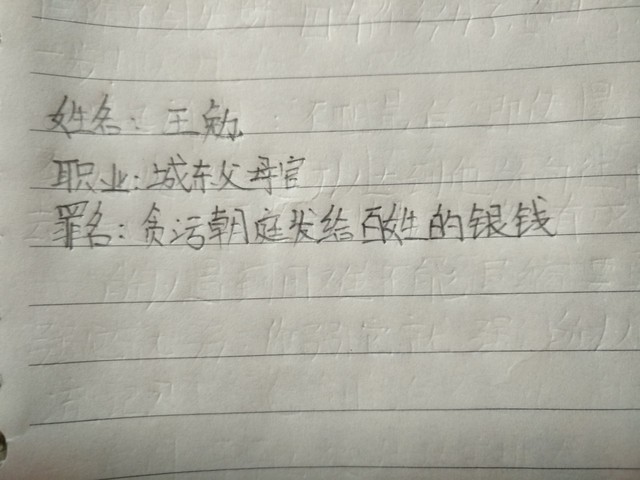 姓名：王勉
职业：城东父母官
罪名：贪污朝庭发给百姓的银钱